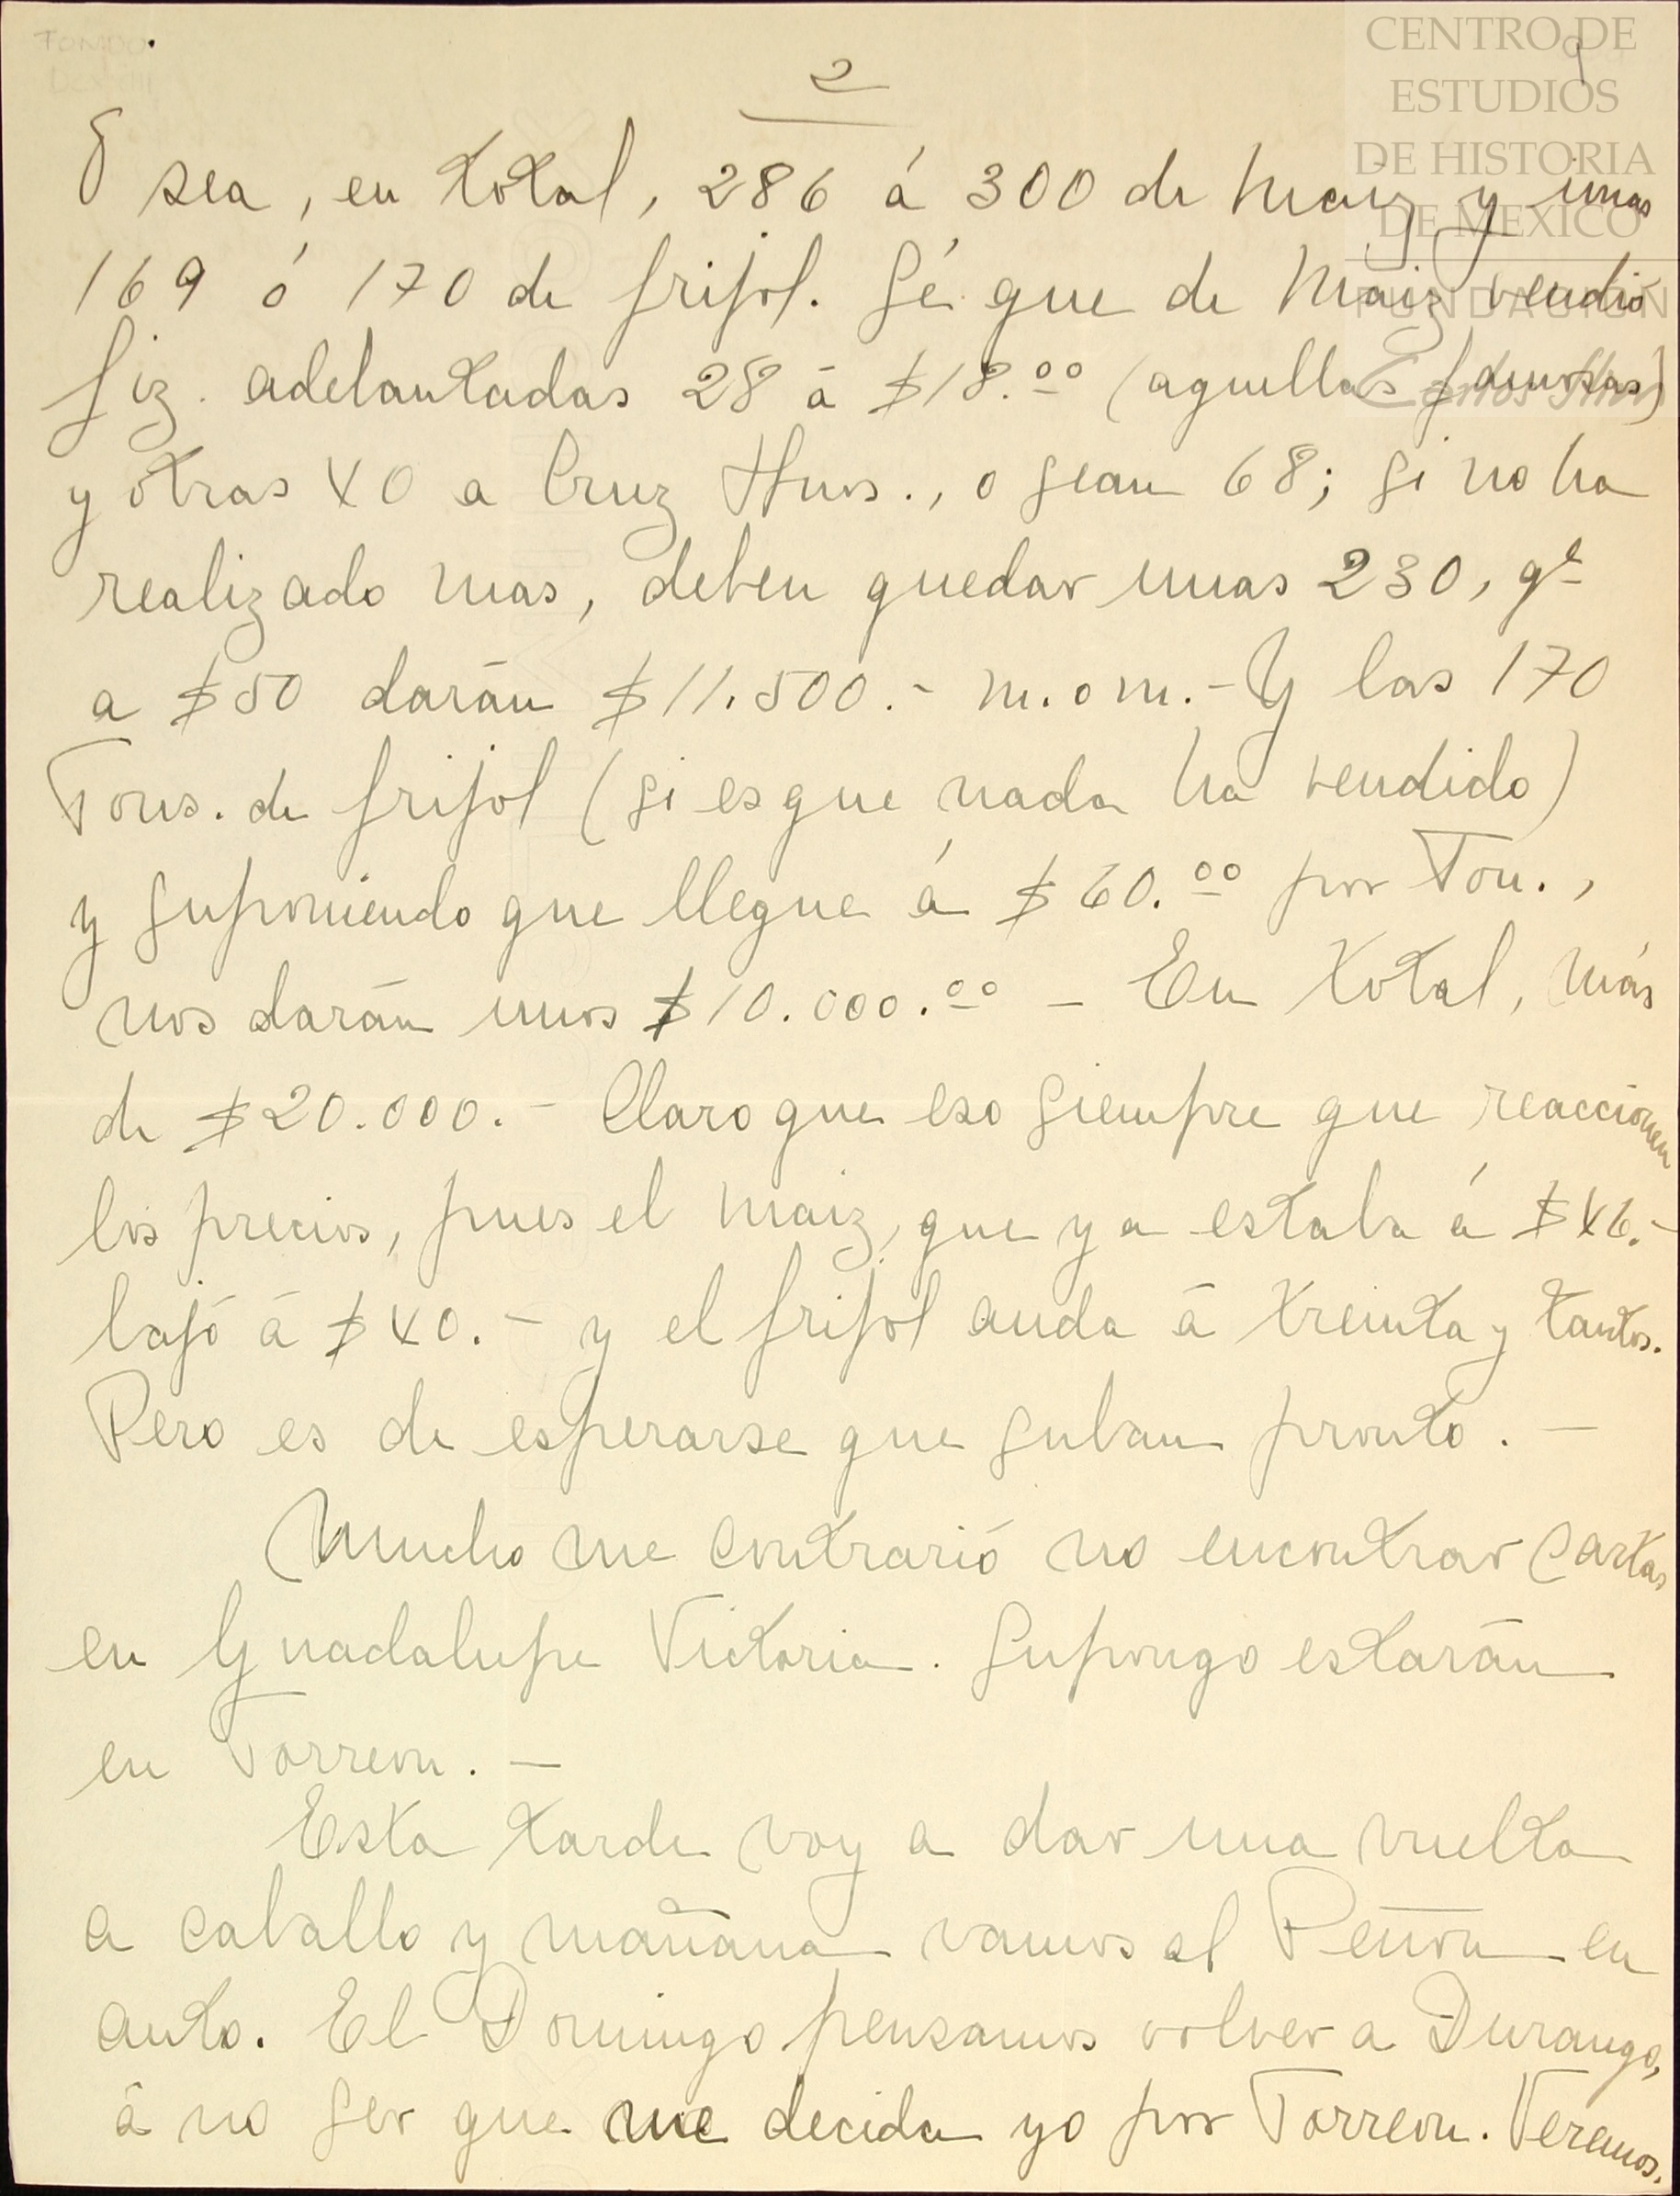 2
9
CENTRO DE
ESTUDIOS
DE HISTORIA
DE MEXICO
FUNDACIÓN
O sea, en total, 286 á 300 de maiz y unas
169 ó 170 de frijol. Sé que de maiz vendió
Liz. adelantadas 28 á $18.00 (aquellas famosas)
y otras 40 a Cruz Hnos., o sean 68; si no ha
realizado mas, deben quedar unas 230, qe
a $50 darán $11.500.- m. o m.- Y las 170
Tons. de frijol (si es que nada ha vendido)
y suponiendo que llegue á $60.00 por Ton.,
nos darán unos $10.000.00 - En total, más
de $20.000.- Claro que eso siempre que reaccionen
los precios, pues el maiz, que ya estaba á $46.-
bajó á $40.- y el frijol anda á treinta y tantos.
Pero es de esperarse que suban pronto. -
Mucho me contrarió no encontrar cartas
en Guadalupe Victoria. Supongo estarán
en Torreon. -
Esta tarde voy a dar una vuelta
a caballo y mañana vamos al Peñon en
auto. El Domingo pensamos volver a Durango,
á no ser que me decida yo por Torreon. Veremos.